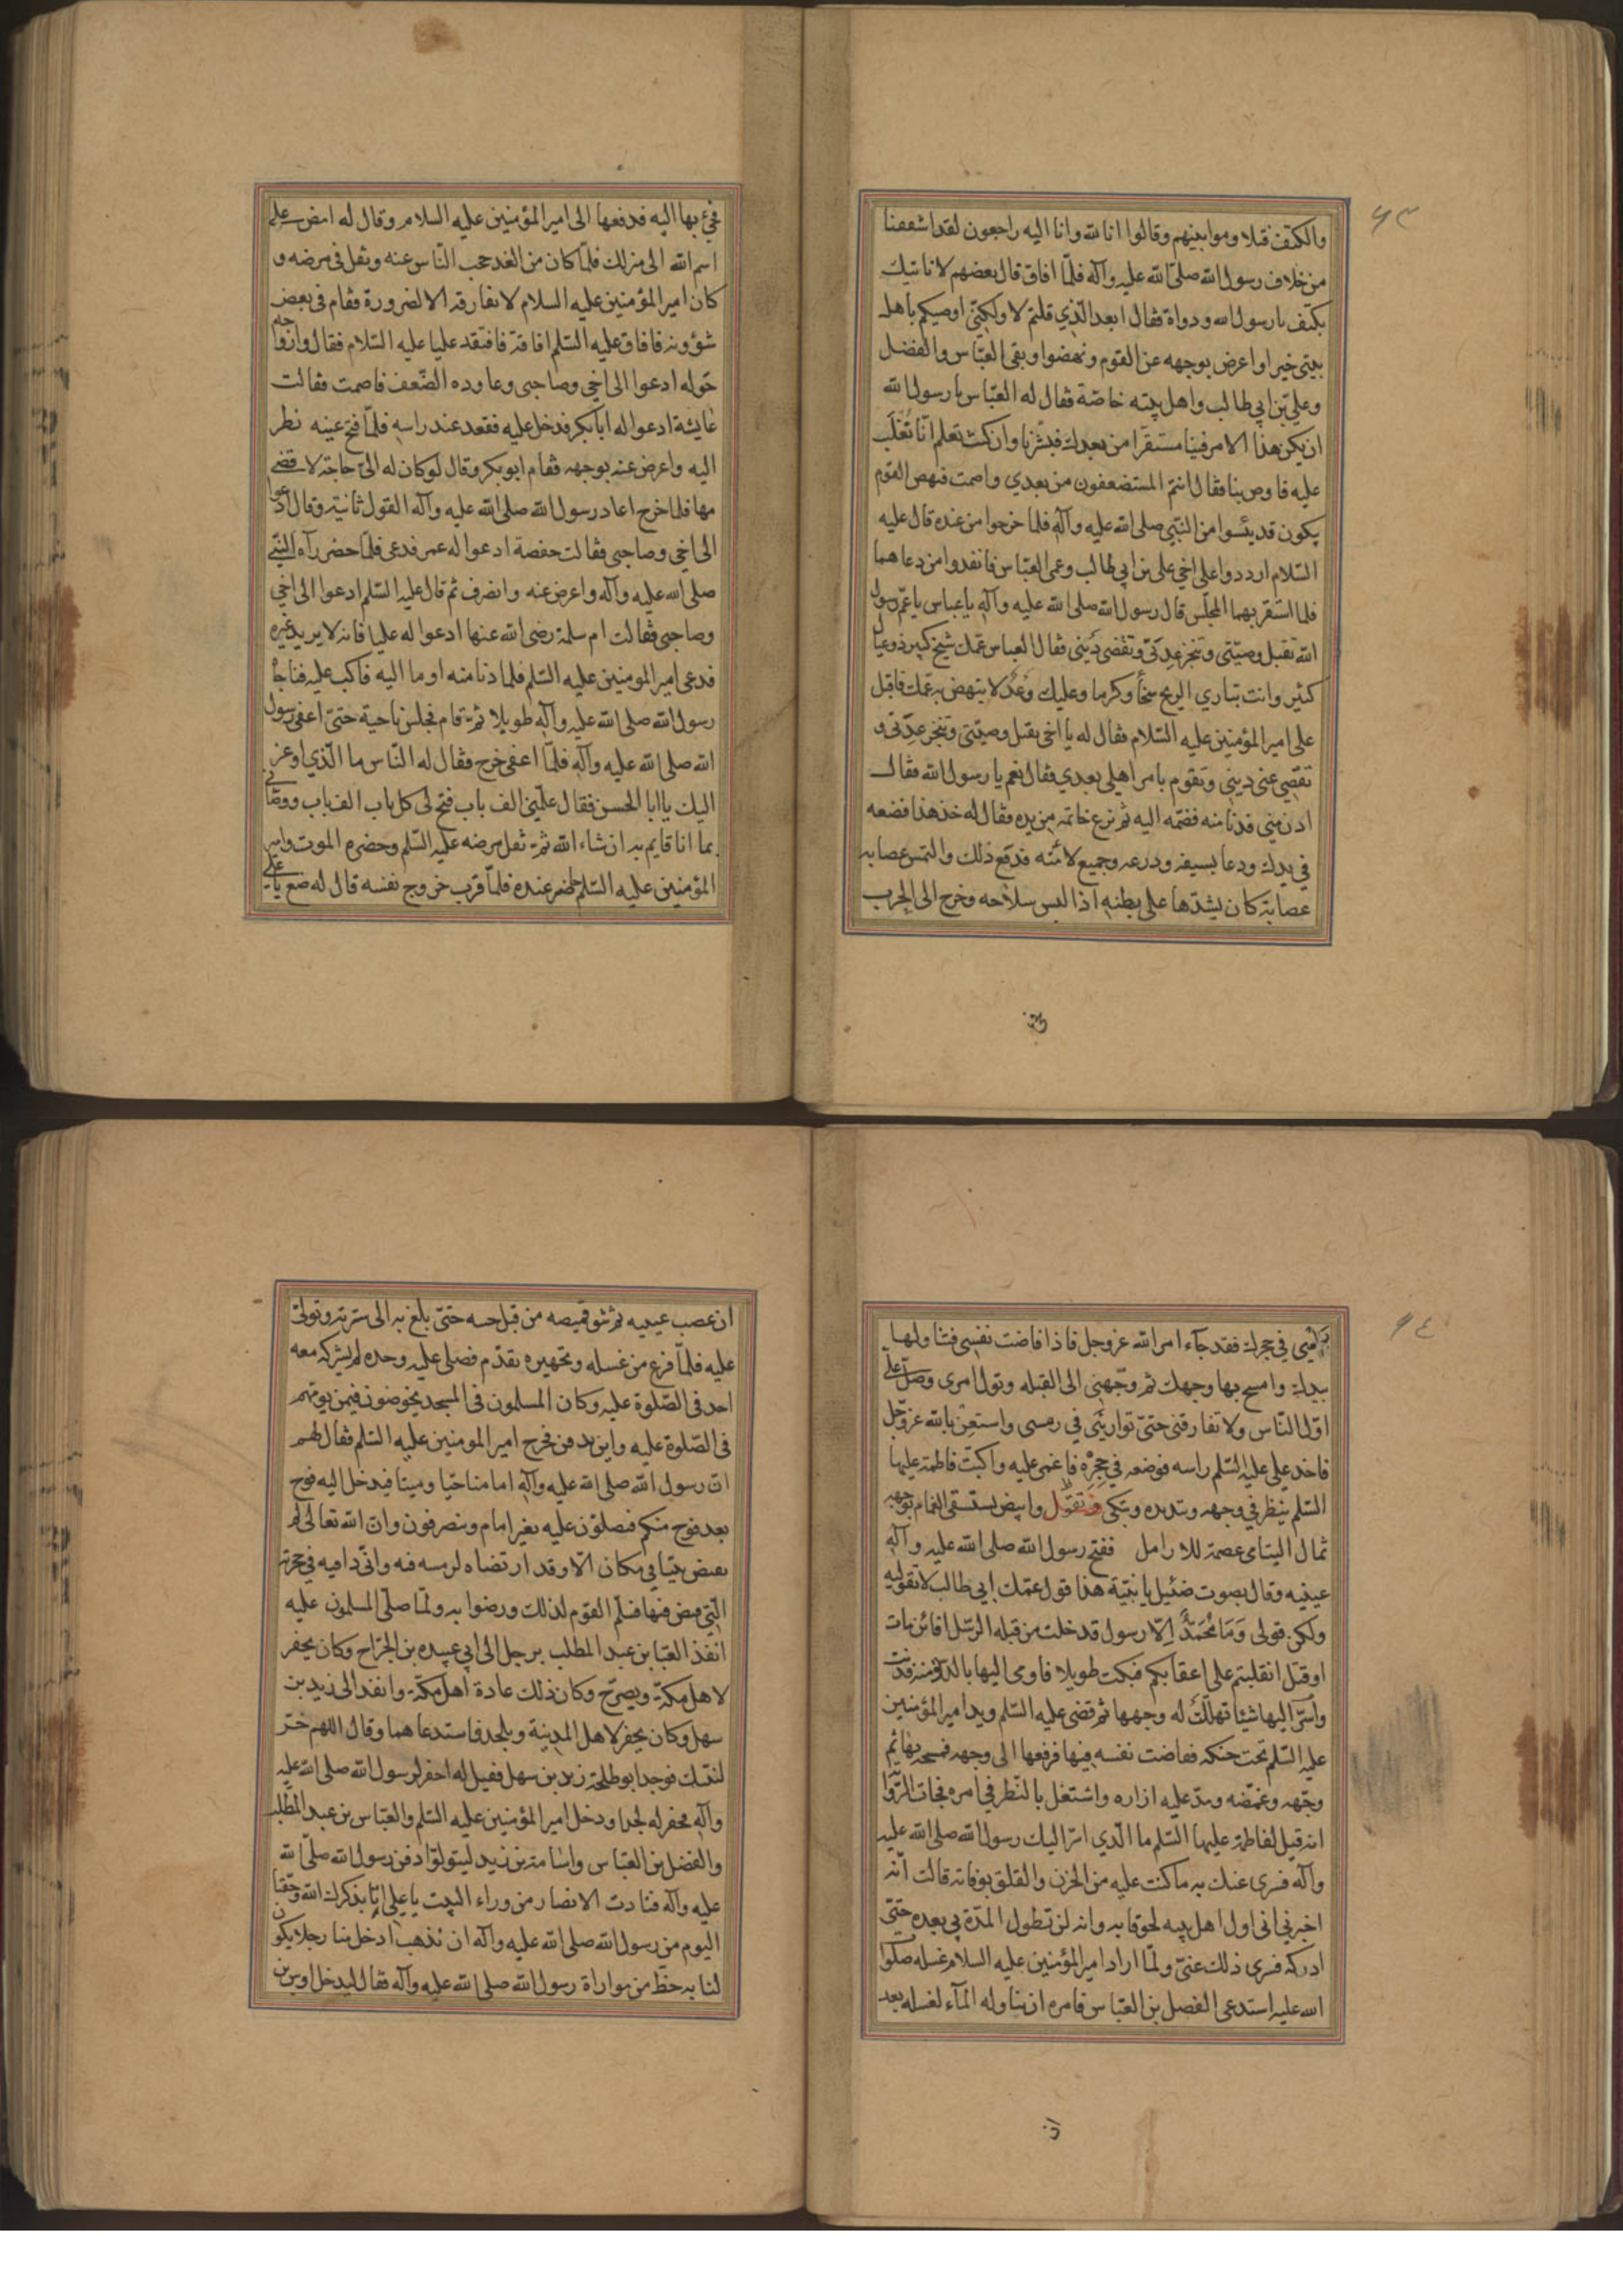 ٩٣
والكتف قبلا وموابينهم وقالوا انا لله وانا اليه راجعون لقد اشفقنا
من خلاف رسول الله صلى الله عليه وآله فلما افاق قال بعضهم لا ناتيك
بكتف يا رسول الله ودواة فقال ابعد الذي قلتم لا ولكني اوصيكم باهل
بيتي خيرا واعرض بوجهه عن القوم ونهضوا وبقى العباس والفضل
وعلي بن ابي طالب واهل بيته خاصة فقال له العباس يا رسول الله
ان يكن هذا الامر فينا مستقرا من بعدك فبشرنا وان كنت تعلم انا تغلب
عليه فاوص بنا فقال انتم المستضعفون من بعدي واصمت فنهض القوم
يكون قد يئسوا من النبي صلى الله عليه وآله فلما خرجوا من عنده قال عليه
السلام ارددوا على اخي علي بن ابي طالب وعمى العباس فانفدوا من دعاهما
فلما استقر بهما المجلس قال رسول الله صلى الله عليه وآله يا عباس يا عم رسول
الله تقبل وصيتي وتنجز عدتي وتقضي ديني فقال العباس عمك شيخ كبير ذو عيال
كثير وانت تباري الريح سخأ وكرما وعليك وعد لا ينهض به عمك فاقبل
على امير المؤمنين عليه السلام فقال له يا اخى تقبل وصيتي وتنجز عدتي و
تقضي عني ديني وتقوم بامر اهلي بعدي فقال نعم يا رسول الله فقال
ادن مني فدنا منه فضمه اليه ثم نزع خاتمه من يده فقال له خذ هذا فضعه
في يدك ودعا بسيفه ودرعه وجميع لامته فدفع ذلك والتمس عصابه
عصابة كان يشدها على بطنه اذا لبس سلاحه وخرج الى الحرب
فجئ بها اليه فدفعها الى امير المؤمنين عليه السلام وقال له امض على
اسم الله الى منزلك فلما كان من الغد حجب الناس عنه وثقل في مرضه و
كان امير المؤمنين عليه السلام لا يفارقه الا لضرورة فقام في بعض
شؤونه فافاق عليه السلم افاقة فافتقد عليا عليه السلام فقال وازواجه
حوله ادعوا الى اخي وصاحبي وعاوده الضعف فاصمت فقالت
عايشة ادعوا له ابا بكر فدخل عليه فقعد عند راسه فلما فتح عينه نظر
اليه واعرض عنه بوجهه فقام ابو بكر وقال لو كان له الى حاجة لافضى
مها فلما خرج اعاد رسول الله صلى الله عليه وآله القول ثانية وقال ادعوا
الى اخي وصاحبي فقالت حفصة ادعوا له عمر فدعى فلما حضر رآه النبي
صلى الله عليه وآله واعرض عنه وانصرف ثم قال عليه السلم ادعوا الى اخي
وصاحبي فقالت ام سلمة رضى الله عنها ادعوا له عليا فانه لا يريد غيره
فدعى امير المومنين عليه السلم فلما دنا منه اوما اليه فاكب عليه فناجاه
رسول الله صلى الله عليه وآله طويلا ثم قام فجلس ناحية حتى اغفى رسول
الله صلى الله عليه وآله فلما اغفى خرج فقال له الناس ما الذي اوعز
اليك يا ابا الحسن فقال علمني الف باب فتح لي كل باب الف باب ووصاني
بما انا قايم به ان شاء الله ثم ثقل مرضه عليه السلم وحضره الموت وامير
المؤمنين عليه السلم حاضر عنده فلما قرب خروج نفسه قال له ضع يا علي
فجئ
٩٤
في حجرك فقد جآء امر الله عز وجل فاذا فاضت نفسي فتناولها
بيدك وامسح بها وجهك ثم وجهني الى القبله وتول امرى وصل على
اول الناس ولا تفارقني حتى تواريني في رمسي واستعن بالله عز وجل
فاخد علي عليه السلم راسه فوضعه في حجره فاغمى عليه واكبت فاطمة عليها
السلم ينظر في وجهه وتندبه وتبكى وتقول وابيض يستسقى الغمام بوجهه
ثمال اليتامى عصمة للارامل ففتح رسول الله صلى الله عليه وآله
عينيه وقال بصوت ضئيل يا بنية هذا قول عمك ابي طالب لا تقوليه
ولكن قولى وَمَا مُحَمَّدٌ اِلّا رسول قد خلت من قبله الرسل افائن مات
او قتل انقلبتم على اعقابكم فبكت طويلا فاومى اليها بالدنو منه فدنت
واسر اليها شيئا تهلل له وجهها ثم قضى عليه السلم ويد امير المؤمنين
عليه السلم تحت حنكه ففاضت نفسه فيها فرفعها الى وجهه فمسحه بها ثم
وجهه وغمضه ومد عليه ازاره واشتغل بالنظر في امره فجات الروا
انه قيل لفاطمة عليها السلم ما الذي اسر اليك رسول الله صلى الله عليه
وآله فسرى عنك به ما كنت عليه من الحزن والقلق بوفاته قالت انه
اخبرني انى اول اهل بيته لحوقا به وانه لن تطول المدة بي بعده حتى
ادركه فسرى ذلك عني ولما اراد امير المؤمنين عليه السلام غسله صلوا
الله عليه استدعى الفضل بن العباس فامره ان يناوله المآء لغسله بعد
ان عصب عينيه ثم شق قميصه من قبل جيبه حتى بلغ به الى سرته وتولى
عليه فلما فرغ من غسله وتجهيزه تقدم فصلى عليه وحده لم يشركه معه
احد في الصلوة عليه وكان المسلمون في المسجد يخوضون فيمن يومهم
في الصلوة عليه واين يدفن فخرج امير المومنين عليه السلم فقال لهم
ان رسول الله صلى الله عليه وآله امامنا حيا وميتا فيدخل اليه فوج
بعد فوج منكم فيصلون عليه بغير امام وينصرفون وان الله تعالى لم
يقبض نبيا في مكان الا وقد ارتضاه لرمسه فيه واني دافنه في حجرته
التي قبض فيها فسلم القوم لذلك ورضوا به ولما صلى المسلمون عليه
انفذ العباس بن عبد المطلب برجل الى ابي عبيده بن الجراح وكان يحفر
لاهل مكة ويصرح وكان ذلك عادة اهل مكة وانفد الى زيد بن
سهل وكان يحفر لاهل المدينة ويلحد فاستدعاهما وقال اللهم خر
لنبيك فوجد ابو طلحة زيد بن سهل فقيل له احفر لرسول الله صلى الله عليه
وآله فحفر له لحدا ودخل امير المؤمنين عليه السلم والعباس بن عبد المطلب
والفضل بن العباس واسامة بن زيد ليتولوا دفن رسول الله صلى الله
عليه وآله فنادت الانصار من وراء البيت يا علي انا نذكرك الله وحقنا
اليوم من رسول الله صلى الله عليه وآله ان يذهب ادخل منا رجلا يكون
لنا به حظ من مواراة رسول الله صلى الله عليه وآله فقال ليدخل اوس بن
ان